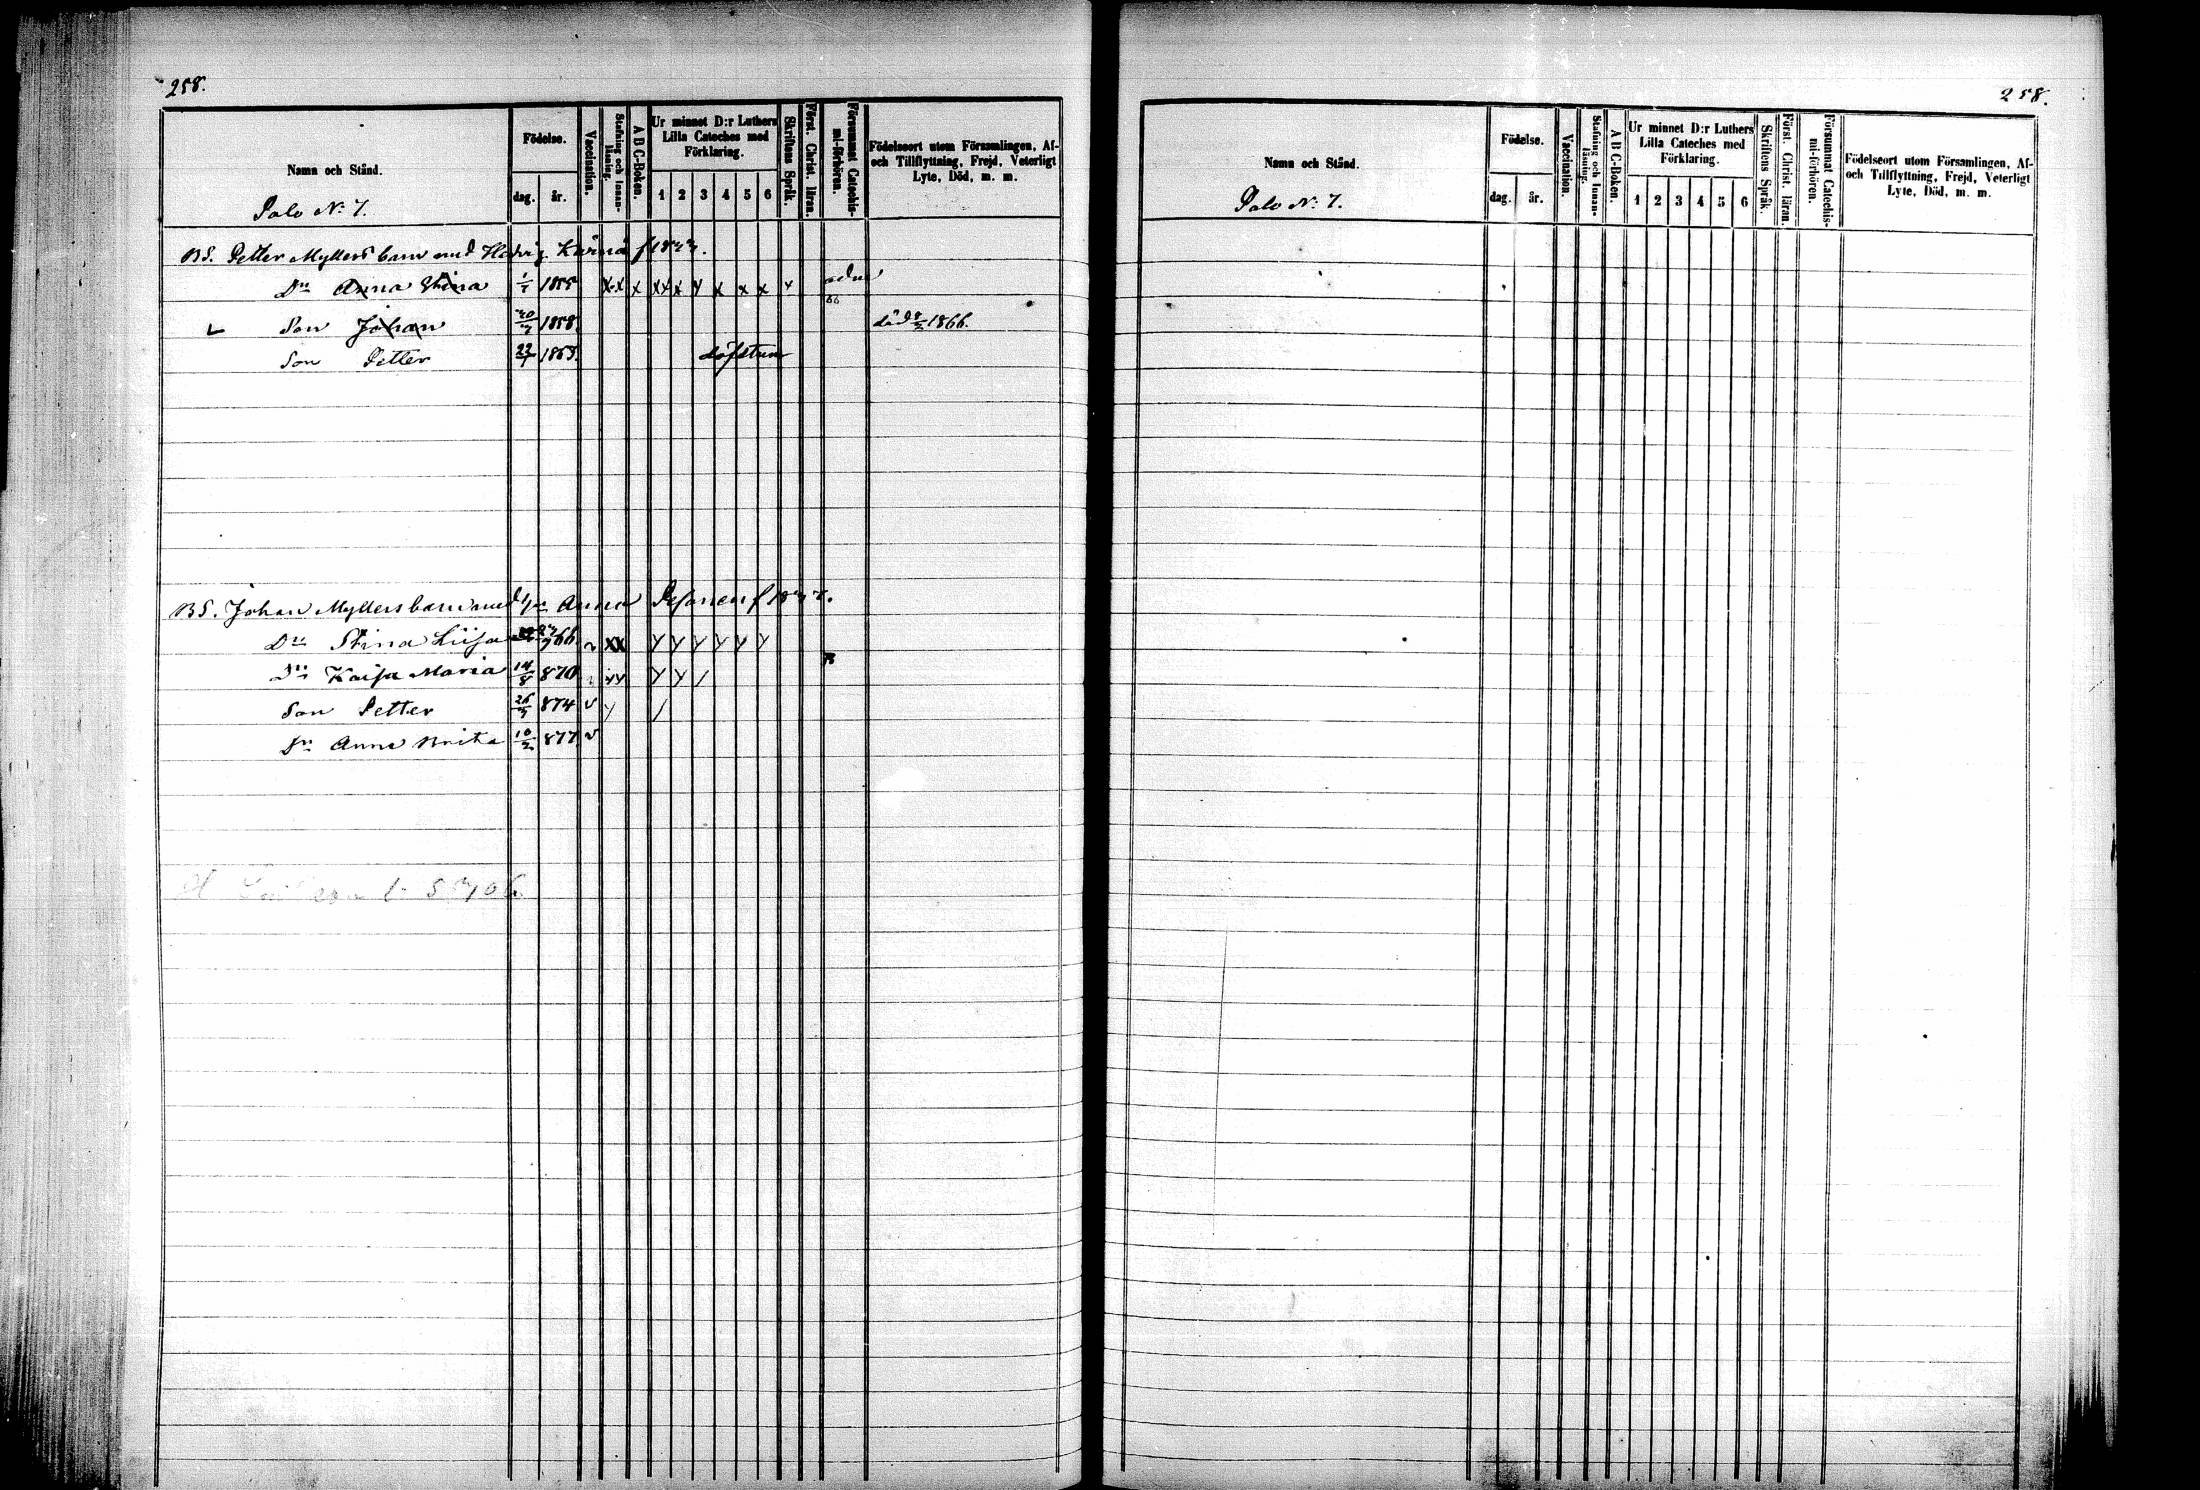 258.
Namn och Stånd.
Födelse.
dag.
år.
Vaccination.
Stafning och Innan-läsning.
A B C-Boken.
Ur minnet D:r Luthers
Lilla Cateches med
Förklaring.
1 2 3 4 5 6
Skriftens Språk.
Först. Christ. läran.
Försummat Catechis-
mi-förhören.
Födelseort utom Församlingen, Af-
och Tillflyttning, Frejd, Veterligt
Lyte, Död, m. m.
Palo No 7.
BS. Petter Myllers barn med Hedvig Kärnä f 1833.
Dr Anna Stina 1/7 1855 X X X X X X Y X X X Y
Son Johan 1858. död 1866.
Son Petter 23/1 1863. döfstum
BS. Johan Myllers barn med Anna
Dr Stina Liisa 66. XX Y Y Y Y Y Y
Dr Kaisa Maria 14/8 870 YY Y Y /
Son Petter 26/3 874 v Y /
Dr Anna Brita 10/2 877. v
258.
Namn och Stånd.
Födelse.
dag.
år.
Vaccination.
Stafning och Innan-läsning.
A B C-Boken.
Ur minnet D:r Luthers
Lilla Cateches med
Förklaring.
1 2 3 4 5 6
Skriftens Språk.
Först. Christ. läran.
Försummat Catechis-
mi-förhören.
Födelseort utom Församlingen, Af-
och Tillflyttning, Frejd, Veterligt
Lyte, Död, m. m.
Palo No 7.